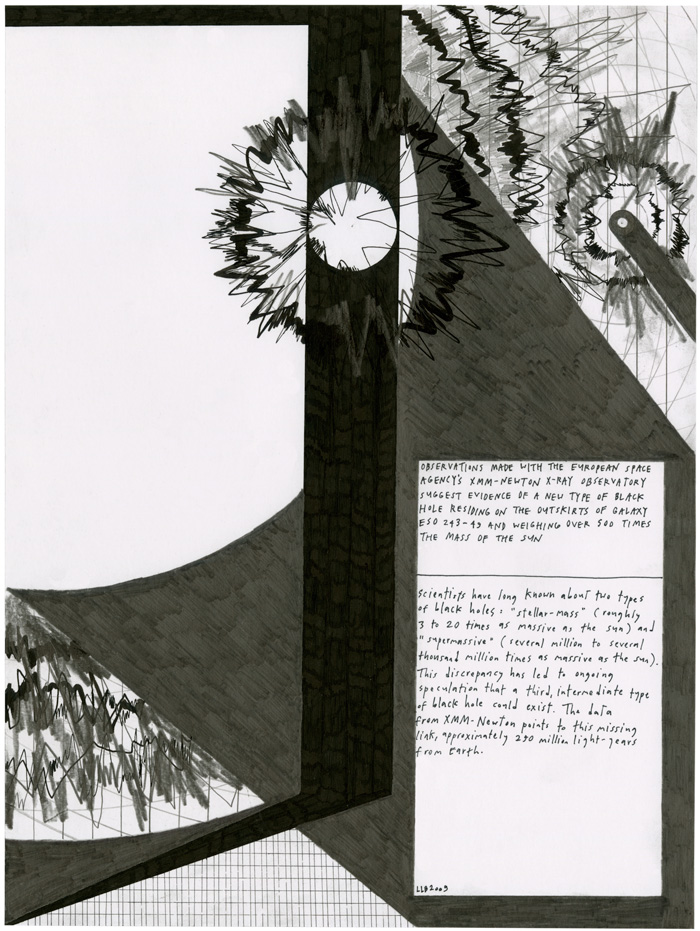 OBSERVATIONS MADE WITH THE EUROPEAN SPACE
AGENCY'S XMM-NEWTON X-RAY OBSERVATORY
SUGGEST EVIDENCE OF A NEW TYPE OF BLACK
HOLE RESIDING ON THE OUTSKIRTS OF GALAXY
ESO 243-49 AND WEIGHING OVER 500 TIMES
THE MASS OF THE SUN
Scientists have long known about two types
of black holes: "stellar-mass" (roughly
3 to 20 times as massive as the sun) and
"supermassive" (several million to several
thousand million times as massive as the sun).
This discrepancy has led to ongoing
speculation that a third, intermediate type
of black hole could exist. The data
from XMM-Newton points to this missing
link, approximately 290 million light-years
from Earth.
LLB2009